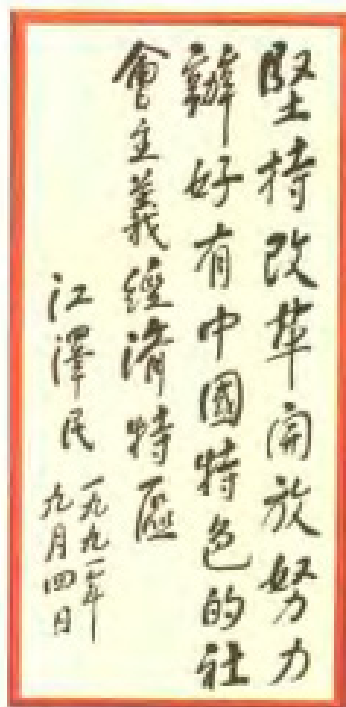 堅持改革開放努力
辦好有中國特色的社
會主義經濟特區
江澤民
一九九一年
九月四日